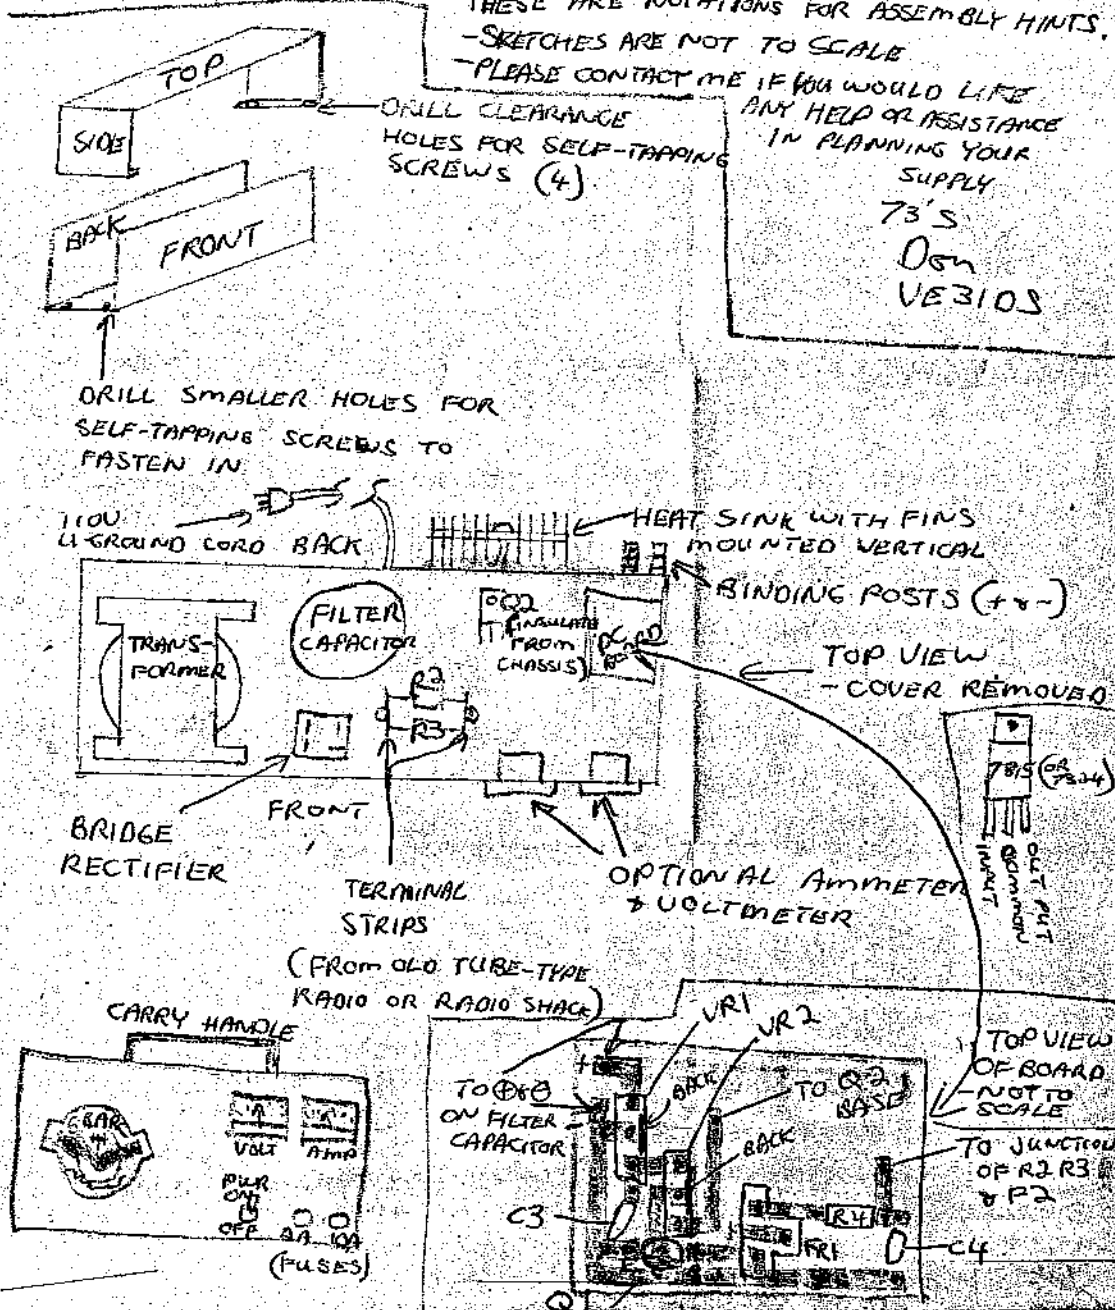 THESE ARE NOTATIONS FOR ASSEMBLY HINTS.
-SKETCHES ARE NOT TO SCALE
-PLEASE CONTACT ME IF YOU WOULD LIKE
ANY HELP OR ASSISTANCE
IN PLANNING YOUR
SUPPLY
73'S
Don
VE3IDS
TOP
SIDE
DRILL CLEARANCE
HOLES FOR SELF-TAPPING
SCREWS (4)
BACK
FRONT
DRILL SMALLER HOLES FOR
SELF-TAPPING SCREWS TO
FASTEN IN
110V
U-GROUND CORD BACK
HEAT SINK WITH FINS
MOUNTED VERTICAL
BINDING POSTS (+ & -)
TRANS-
FORMER
FILTER
CAPACITOR
Q2
(INSULATE
FROM
CHASSIS)
PC
BOARD
R2
R3
TOP VIEW
- COVER REMOVED
7815 (OR
7824)
INPUT
COMMON
OUTPUT
FRONT
BRIDGE
RECTIFIER
TERMINAL
STRIPS
(FROM OLD TUBE-TYPE
RADIO OR RADIO SHACK)
OPTIONAL AMMETER
& VOLTMETER
CARRY HANDLE
VOLT
AMP
PWR
ON
OFF
2A
10A
(FUSES)
VR1
VR2
+
TO ⊕ & ⊖
ON FILTER
CAPACITOR
BACK
BACK
TO Q-2
BASE
TOP VIEW
OF BOARD
-NOT TO
SCALE
TO JUNCTION
OF R2 R3
& P2
C3
R4
PR1
C4
Q